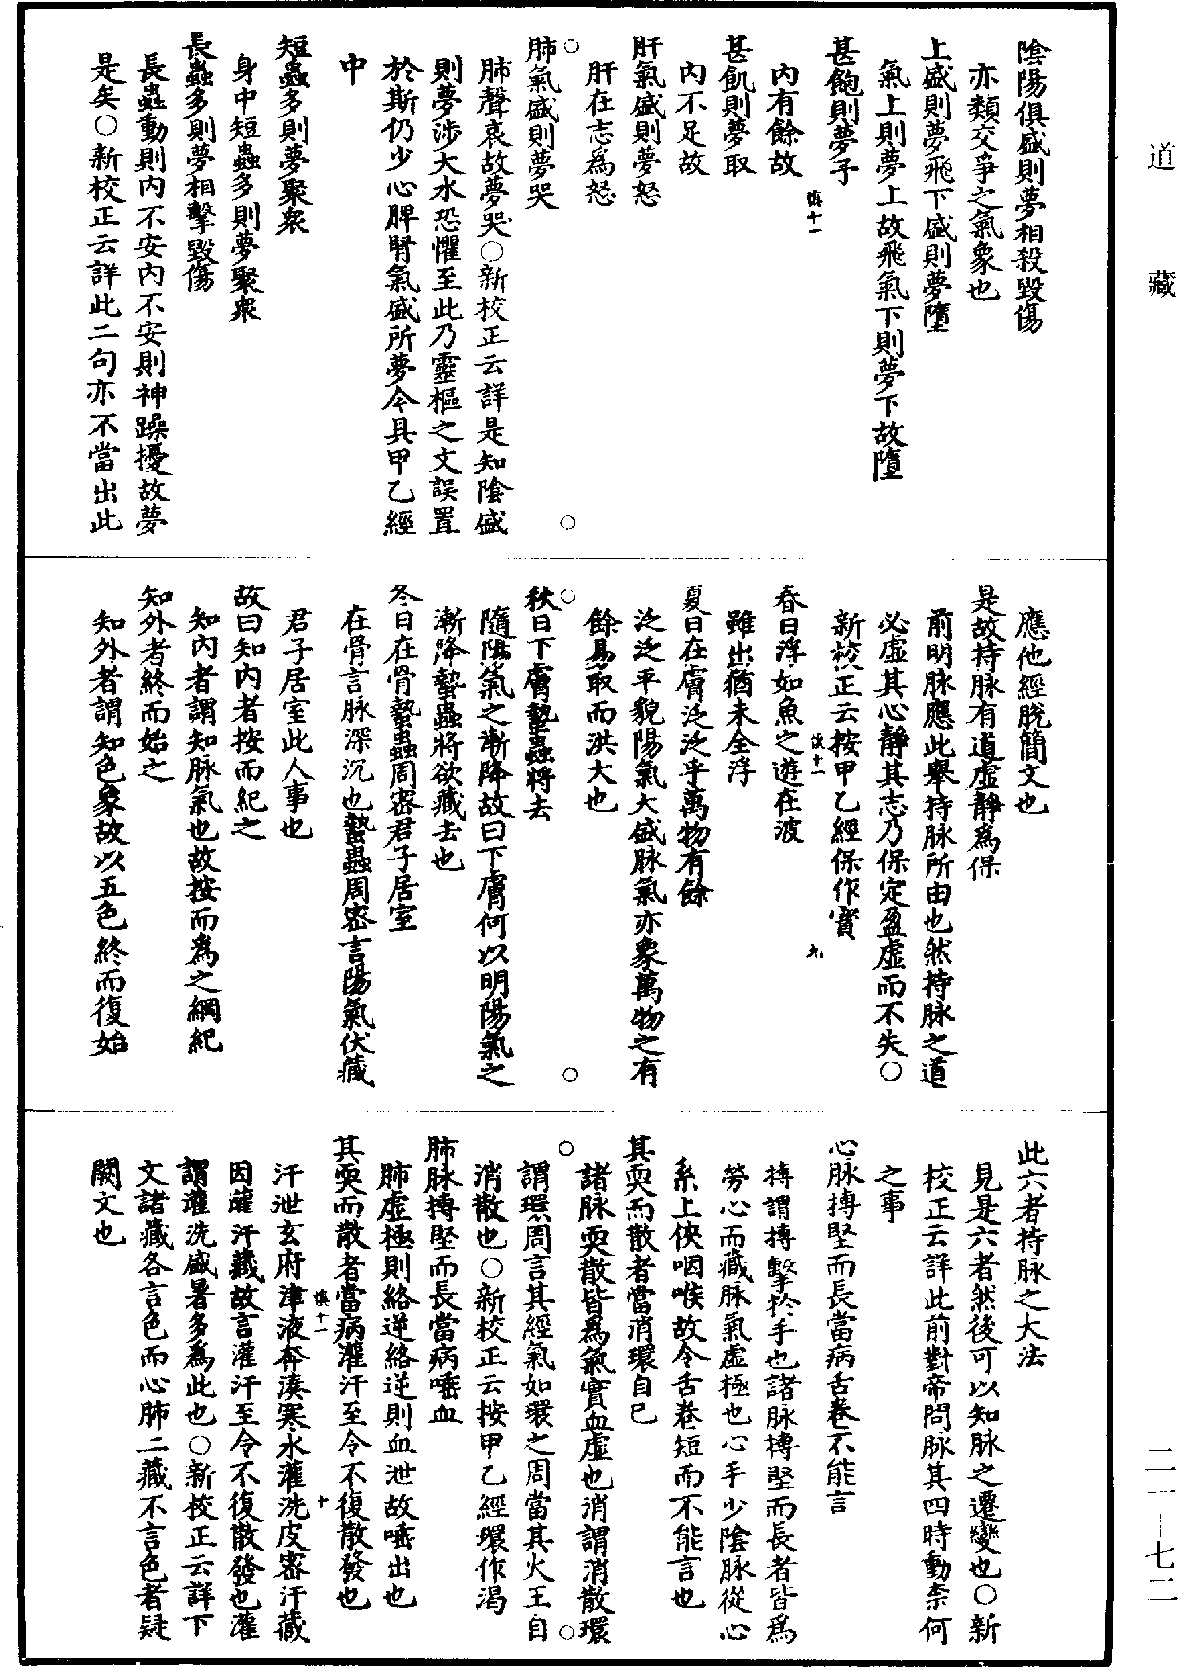 道藏
陰陽俱盛則夢相殺毀傷
亦類交爭之氣象也
上盛則夢飛下盛則夢墮
氣上則夢上故飛氣下則夢下故墮
甚飽則夢予
慎十一
內有餘故
甚飢則夢取
內不足故
肝氣盛則夢怒
肝在志為怒
肺氣盛則夢哭
肺聲哀故夢哭○新校正云詳是知陰盛
則夢涉大水恐懼至此乃靈樞之文誤置
於斯仍少心脾腎氣盛所夢今具甲乙經
中
短蟲多則夢聚衆
身中短蟲多則夢聚衆
長蟲多則夢相擊毀傷
長蟲動則內不安內不安則神躁擾故夢
是矣○新校正云詳此二句亦不當出此
應他經脫簡文也
是故持脉有道虛靜為保
前明脉應此舉持脉所由也然持脉之道
必虛其心靜其志乃保定盈虛而不失○
新校正云按甲乙經保作寶
慎十一 九
春日浮如魚之遊在波
雖出猶未全浮
夏日在膚泛泛乎萬物有餘
泛泛平貌陽氣大盛脉氣亦象萬物之有
餘易取而洪大也
秋日下膚蟄蟲將去
隨陽氣之漸降故曰下膚何以明陽氣之
漸降蟄蟲將欲藏去也
冬日在骨蟄蟲周密君子居室
在骨言脉深沉也蟄蟲周密言陽氣伏藏
君子居室此人事也
故曰知內者按而紀之
知內者謂知脉氣也故按而為之綱紀
知外者終而始之
知外者謂知色象故以五色終而復始
此六者持脉之大法
見是六者然後可以知脉之遷變也○新
校正云詳此前對帝問脉其四時動柰何
之事
心脉搏堅而長當病舌卷不能言
搏謂搏擊於手也諸脉搏堅而長者皆為
勞心而藏脉氣虛極也心手少陰脉從心
系上俠咽喉故令舌卷短而不能言也
其耎而散者當消環自已
諸脉耎散皆為氣實血虛也消謂消散環
謂環周言其經氣如環之周當其火王自
消散也○新校正云按甲乙經環作渴
肺脉搏堅而長當病唾血
肺虛極則絡逆絡逆則血泄故唾出也
其耎而散者當病灌汗至令不復散發也
慎十一 十
汗泄玄府津液奔湊寒水灌洗皮密汗藏
因灌汗藏故言灌汗至令不復散發也灌
謂灌洗盛暑多為此也○新校正云詳下
文諸藏各言色而心肺二藏不言色者疑
闕文也
二一—七二